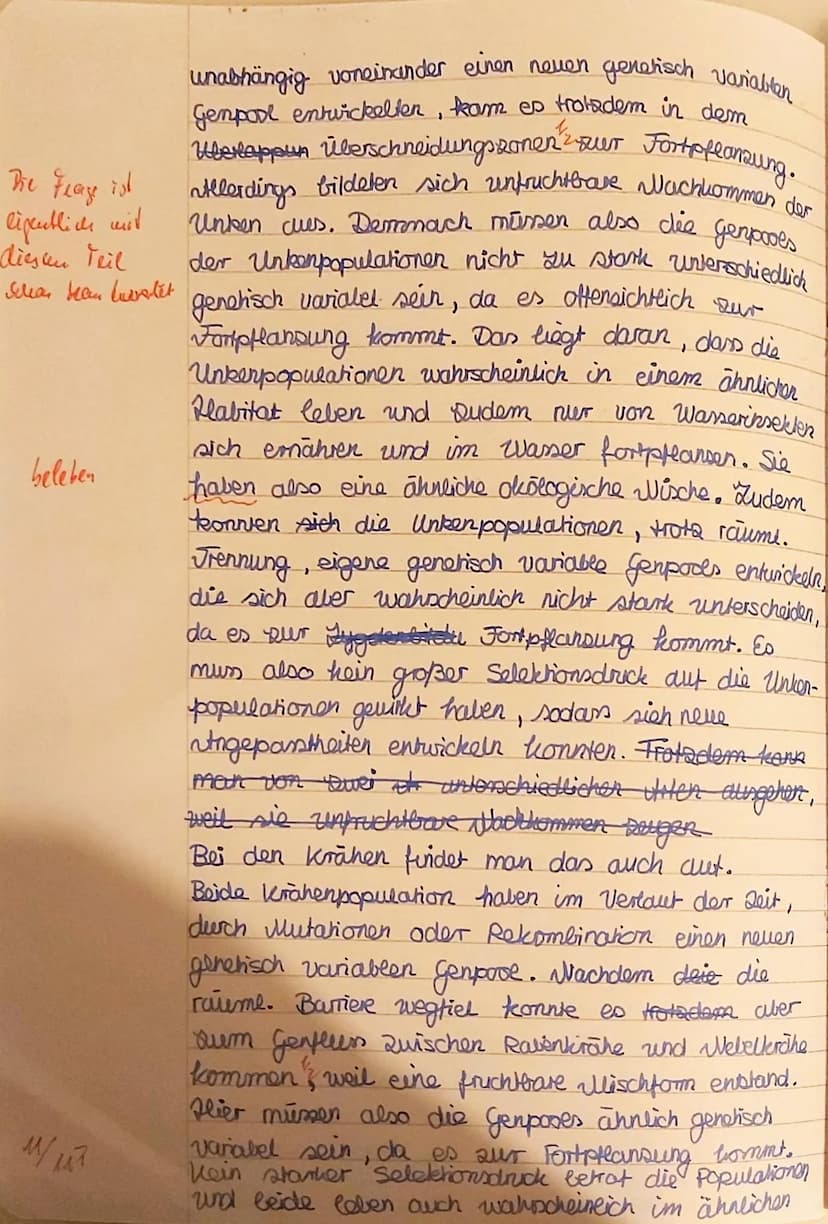 unabhängig voneinander einen neuen genetisch variablen
Genpool entwickelten, kam es trotzdem in dem
Überlappun Überschneidungszonen zur Fortpflanzung.
Allerdings bildeten sich unfruchtbare Nachkommen der
Unken aus. Demnach müssen also die Genpools
der Unkenpopulationen nicht zu stark unterschiedlich
genetisch variabel sein, da es offensichtlich zur
Fortpflanzung kommt. Das liegt daran, dass die
Unkenpopulationen wahrscheinlich in einem ähnlichen
Habitat leben und zudem nur von Wasserinsekten
sich ernähren und im Wasser fortpflanzen. Sie
haben also eine ähnliche ökologische Nische. Zudem
konnten sich die Unkenpopulationen, trotz räuml.
Trennung, eigene genetisch variable Genpools entwickeln,
die sich aber wahrscheinlich nicht stark unterscheiden,
da es zur Fortpflanzung kommt. Es
muss also kein großer Selektionsdruck auf die Unken-
populationen gewirkt haben, sodass sich neue
Angepasstheiten entwickeln konnten. Trotzdem kann
man von zwei unterschiedlichen Arten ausgehen,
weil sie unfruchtbare Nachkommen zeugen
Bei den Krähen findet man das auch auf.
Beide Krähenpopulation haben im Verlauf der Zeit,
durch Mutationen oder Rekombination einen neuen
genetisch variablen Genpool. Nachdem die
räuml. Barriere wegfiel konnte es trotzdem aber
zum Genfluss zwischen Rabenkrähe und Nebelkrähe
kommen, weil eine fruchtbare Mischform entstand.
Hier müssen also die Genpools ähnlich genetisch
variabel sein, da es zur Fortpflanzung kommt.
Kein starker Selektionsdruck betraf die Populationen
und beide leben auch wahrscheinlich im ähnlichen
Die Frage ist
eigentlich mit
diesem Teil
schon
beleben